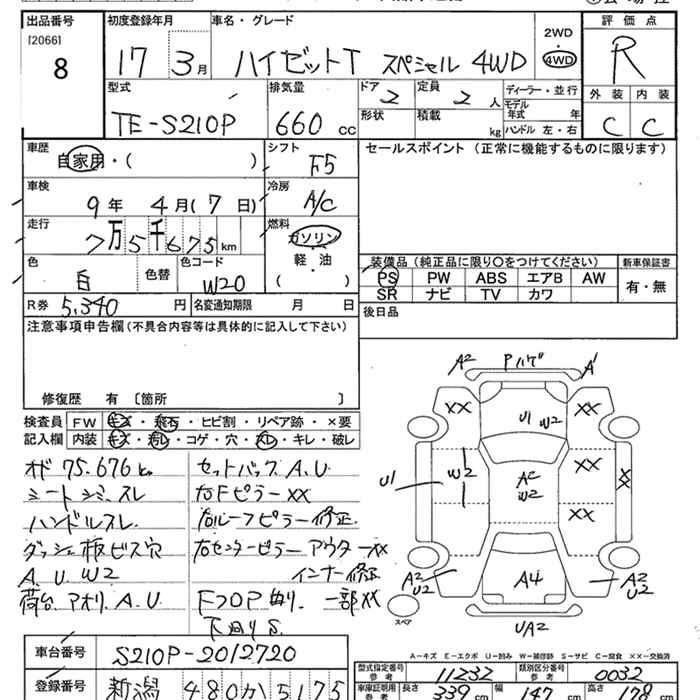 出品番号 初度登録年月 車名・グレード 評価点
[2066]
8 17 3月 ハイゼットT スペシャル 4WD 2WD 4WD R
型式 排気量 ドア 2 定員 2 人 ディーラー・並行 外装 内装
TE-S210P 660 cc 形状 積載 kg モデル年式 年 C C
ハンドル 左・右
車歴 シフト セールスポイント (正常に機能するものに限ります)
自家用・( ) F5
車検 冷房
9年 4月(7日) A/C
走行 燃料
7万5千675km ガソリン
色 色替 色コード 軽・油 装備品 (純正品に限り○をつけてください) 新車保証書
白 W20 ( ) PS PW ABS エアB AW 有・無
SR ナビ TV カワ
R券 5,340円 名変通知期限 月 日 後日品
注意事項申告欄 (不具合内容等は具体的に記入して下さい)
修復歴 有 〔箇所 〕
検査員 FW キズ・飛石・ヒビ割・リペア跡・×要
記入欄 内装 キズ・汚レ・コゲ・穴・スレ・キレ・破レ
オド 75.676km セットバック A.U
シートシミ.スレ 右Fピラー XX
ハンドルスレ. 右ルーフピラー修正.
ダッシュ板ビス穴 右センターピラー アウターXX
A.U W2 インナー修正
荷台.アオリ.A.U. FフロP曲り.一部XX
下回りS.
A2 Pハゲ A1
XX U1 W2 XX
U1 W2 A2 W2 XX XX
XX
A2 U2 A4 A2 U2
スペア UA2
A-キズ E-エクボ U-凹み W-補修跡 S-サビ C-腐食 XX-交換済
車台番号 S210P-2012720
型式指定番号 参考 11232 類別区分番号 参考 0032
登録番号 新潟 480か5175
車庫証明用 参考 長さ 339cm 幅 147cm 高さ 178cm